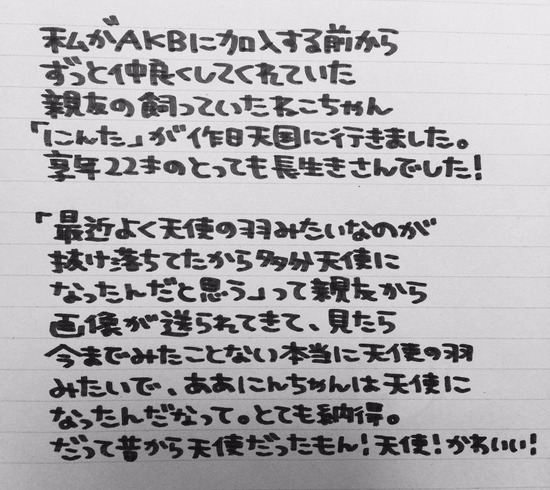 私がAKBに加入する前から
ずっと仲良くしてくれていた
親友の飼っていたねこちゃん
「にんた」が昨日天国に行きました。
享年22才のとっても長生きさんでした!
「最近よく天使の羽みたいなのが
抜け落ちてたから多分天使に
なったんだと思う」って親友から
画像が送られてきて、見たら
今までみたことない本当に天使の羽
みたいで、ああにんちゃんは天使に
なったんだなって。とても納得。
だって昔から天使だったもん!天使!かわいい!